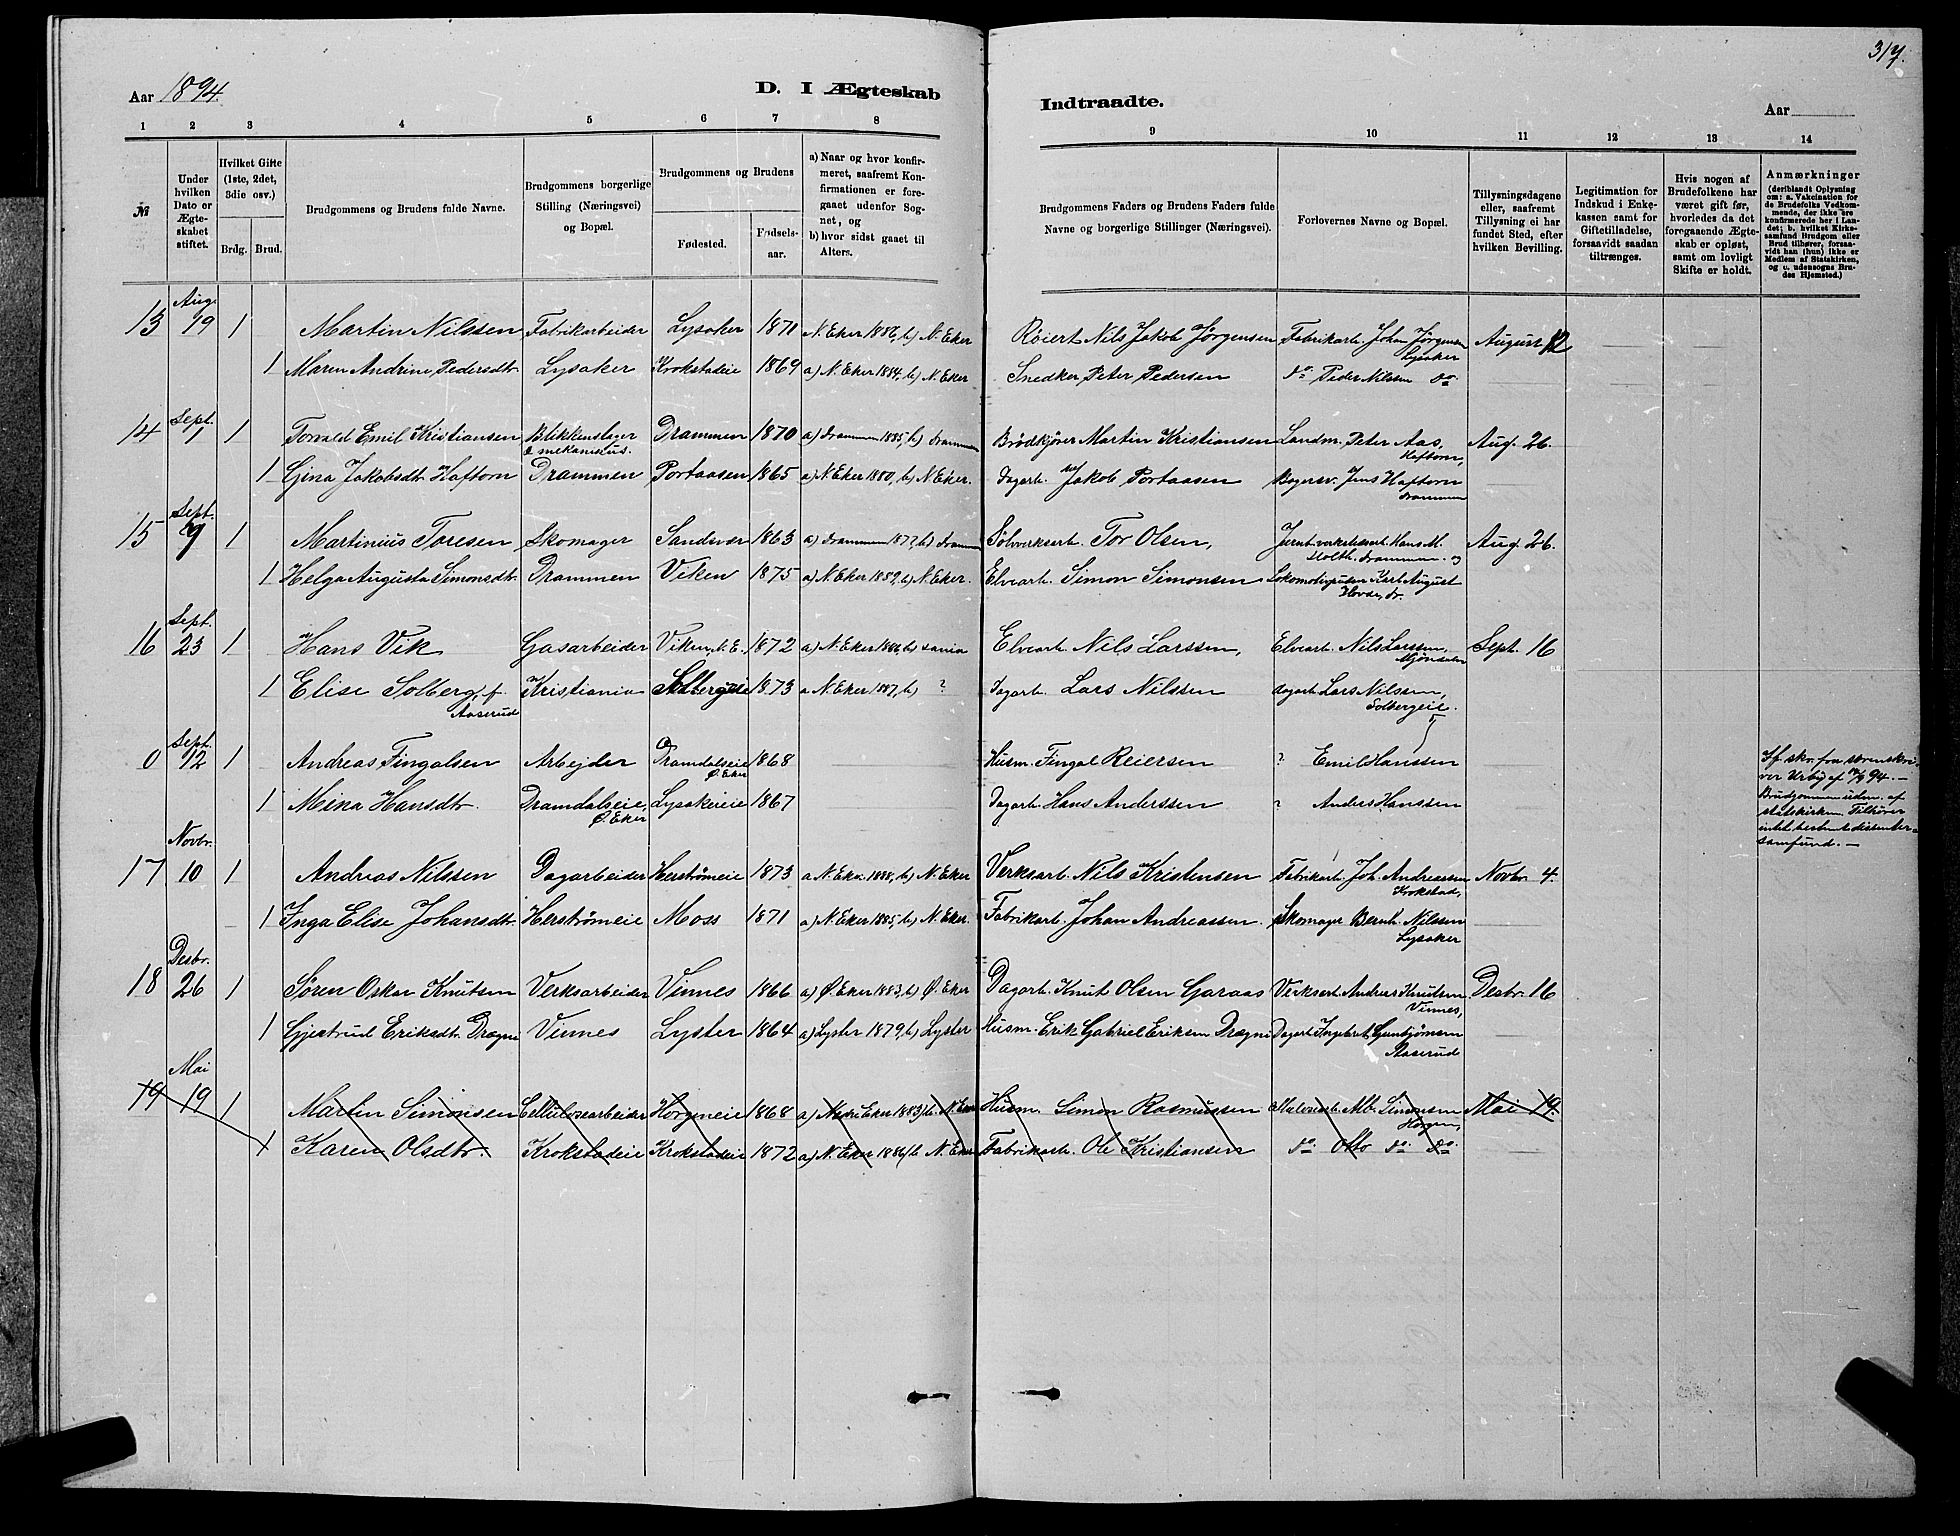 317.
Aar 1894. D. I Ægteskab Indtraadte. Aar
1 2 3 4 5 6 7 8 9 10 11 12 13 14
№
Under hvilken Dato er Ægteskabet stiftet.
Hvilket Gifte (1ste, 2det, 3die osv.)
Brdg. Brud.
Brudgommens og Brudens fulde Navne.
Brudgommens borgerlige Stilling (Næringsvei) og Bopæl.
Brudgommens og Brudens
Fødested. Fødselsaar.
a) Naar og hvor konfirmeret, saafremt Konfirmationen er foregaaet udenfor Sognet, og
b) hvor sidst gaaet til Alters.
Brudgommens Faders og Brudens Faders fulde Navne og borgerlige Stillinger (Næringsvei).
Forlovernes Navne og Bopæl.
Tillysningsdagene eller, saafremt Tillysning ei har fundet Sted, efter hvilken Bevilling.
Legitimation for Indskud i Enkekassen samt for Giftetilladelse, forsaavidt saadan tiltrænges.
Hvis nogen af Brudefolkene har været gift før, hvorledes da det foregaaende Ægteskab er opløst, samt om lovligt Skifte er holdt.
Anmærkninger (deriblandt Oplysning om: a. Vakcination for de Brudefolks Vedkommende, der ikke ere konfirmerede her i Landet; b. hvilket Kirkesamfund Brudgom eller Brud tilhører, forsaavidt han (hun) ikke er Medlem af Statskirken, og u. udensogns Brudes Hjemsted.)
13 Aug. 19 1 Martin Nilssen Fabrikarbeider Lysaker 1871 N. Eker 1886, b) N. Eker Røiert Nils Jakob Jørgensen Fabrikarb. Johan Jørgensen Lysaker August 12
1 Maren Andrine Pedersdtr. Lysaker Krokstadeie 1869 a) N. Eker 1884, b) N. Eker Snedker Peter Pedersen do Peder Nilssen do
14 Sept. 1 1 Torvald Emil Kristiansen Blikkenslager & mekanikus. Drammen 1870 a) Drammen 1885, b) Drammen Brødkjører Martin Kristiansen Landm. Peter Aas, Haftorn, Aug. 26.
1 Gina Jakobsdtr. Haftorn Drammen Portaasen 1865 a) N. Eker 1880, b) N. Eker. Dagarb. Jakob Portaasen Bogersv. Jens Haftorn Drammen
15 Sept. 9 1 Martinius Toresen Skomager Sandsvær 1863 a) Drammen 1877, b) Drammen Sølvverksarb. Tor Olsen, Jernb.verkstedsarb. Hans M. Holth. Drammen. og Aug. 26.
1 Helga Augusta Simonsdtr. Drammen Viken 1875 a) N. Eker 1889, b) N. Eker. Elvearb. Simon Simonsen Lokomotivpudser Karl August Hovde, dr.
16 Sept. 23 1 Hans Vik Gasarbeider Viken, N. E. 1872 a) N. Eker 1886, b) Elvearb. Nils Larssen, Elvearb. Nils Larssen, Mjøndalen Sept. 16
1 Elise Solberg, f. Aaserud Kristiania Solbergeie 1873 a N. Eker 1887, b) ? Dagarb. Lars Nilssen Dagarb. Lars Nilssen, Solbergeie.
0 Sept. 12 1 Andreas Fingalsen Arbejder Dramdalseie Ø. Eker 1868 Husm. Fingal Reiersen ? Emil Hanssen
1 Mina Hansdtr. Dramdalseie, Ø. Eker Lysakereie 1867 Dagarb. Hans Anderssen ? Anders Hanssen
If. skr. fra sorenskriver Urbye af 12/9 94. — Brudgommen udm. af statskirken. Tilhører intet bestemt dissentersamfund. —
17 Novbr. 10 1 Andreas Nilssen Dagarbeider Herstrømeie 1873 a N. Eker 1888, b) N. Eker Verksarb. Nils Kristensen Fabrikarb. Joh. Andreassen Krokstad, Novbr. 4.
1 Inga Elise Johansdtr. Herstrømeie Moss 1871 a) N. Eker 1885, b) N. Eker. Fabrikarb. Johan Andreassen. Skomager Bernh. Nilssen Lysaker
18 Desbr. 26 1 Søren Oskar Knutsen Verksarbeider Vinnes 1866 a) Ø. Eker 1883, b) Ø. Eker Dagarb. Knut Olsen Garaas Verksarb. Andreas Knudsen Vinnes, Desbr. 16
1 Gjestrud Eriksdtr. Drægni Vinnes Lyster 1864 a) Lyster 1879, b) Lyster Husm. Erik Gabriel Eriksen Drægni Dagarb. Ingebret Gunbjørnsen Aaserud
19 Mai 19 1 Martin Simonsen Cellulosearbeider Horgeneie 1868 a) Nedre Eker 1883, b. N. Eker Husm. Simon Rasmussen Alb. Simonsen Horgen, Mai 19.
1 Karen Olsdtr. Krokstadeie Krokstadeie 1872 a) N. Eker 1886, b N. Eker Fabrikarb. Ole Kristiansen do Otto do do